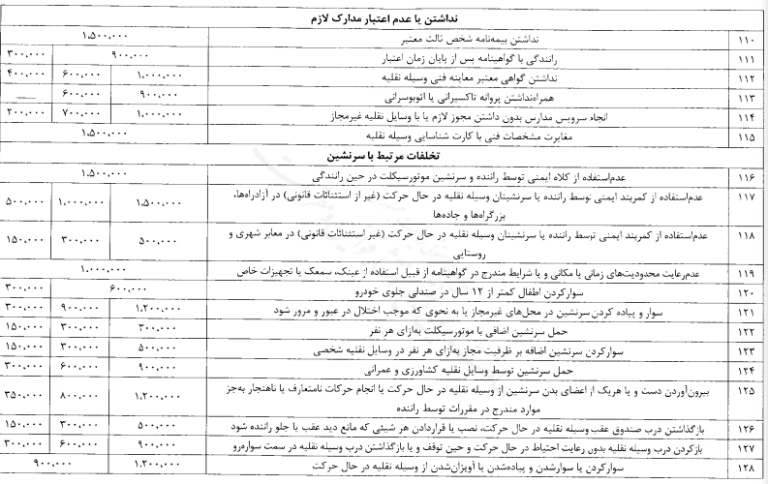 نداشتن یا عدم اعتبار مدارک لازم
۱۱۰ نداشتن بیمه‌نامه شخص ثالث معتبر ۱،۵۰۰،۰۰۰
۱۱۱ رانندگی با گواهینامه پس از پایان زمان اعتبار ۹۰۰،۰۰۰ ۳۰۰،۰۰۰
۱۱۲ نداشتن گواهی معتبر معاینه فنی وسیله نقلیه ۱،۰۰۰،۰۰۰ ۶۰۰،۰۰۰ ۴۰۰،۰۰۰
۱۱۳ همراه‌نداشتن پروانه تاکسیرانی یا اتوبوسرانی ۹۰۰،۰۰۰ ۶۰۰،۰۰۰ ــــ
۱۱۴ انجام سرویس مدارس بدون داشتن مجوز لازم یا با وسایل نقلیه غیرمجاز ۱،۰۰۰،۰۰۰ ۷۰۰،۰۰۰ ۲۰۰،۰۰۰
۱۱۵ مغایرت مشخصات فنی با کارت شناسایی وسیله نقلیه ۱،۵۰۰،۰۰۰
تخلفات مرتبط با سرنشین
۱۱۶ عدم‌استفاده از کلاه ایمنی توسط راننده و سرنشین موتورسیکلت در حین رانندگی ۱،۵۰۰،۰۰۰
۱۱۷ عدم‌استفاده از کمربند ایمنی توسط راننده یا سرنشینان وسیله نقلیه در حال حرکت (غیر از استثنائات قانونی) در آزادراه‌ها، ۱،۵۰۰،۰۰۰ ۱،۰۰۰،۰۰۰ ۵۰۰،۰۰۰
بزرگراه‌ها و جاده‌ها
۱۱۸ عدم‌استفاده از کمربند ایمنی توسط راننده یا سرنشینان وسیله نقلیه در حال حرکت (غیر استثنائات قانونی) در معابر شهری و ۵۰۰،۰۰۰ ۳۰۰،۰۰۰ ۱۵۰،۰۰۰
روستایی
۱۱۹ عدم‌رعایت محدودیت‌های زمانی یا مکانی و یا شرایط مندرج در گواهینامه از قبیل استفاده از عینک، سمعک یا تجهیزات خاص ۱،۰۰۰،۰۰۰
۱۲۰ سوارکردن اطفال کمتر از ۱۲ سال در صندلی جلوی خودرو ۶۰۰،۰۰۰ ۳۰۰،۰۰۰
۱۲۱ سوار و پیاده کردن سرنشین در محل‌های غیرمجاز یا به نحوی که موجب اختلال در عبور و مرور شود ۱،۲۰۰،۰۰۰ ۹۰۰،۰۰۰ ۳۰۰،۰۰۰
۱۲۲ حمل سرنشین اضافی با موتورسیکلت به‌ازای هر نفر ۳۰۰،۰۰۰ ۳۰۰،۰۰۰ ۱۵۰،۰۰۰
۱۲۳ سوارکردن سرنشین اضافه بر ظرفیت مجاز به‌ازای هر نفر در وسایل نقلیه شخصی ۵۰۰،۰۰۰ ۳۰۰،۰۰۰ ۱۵۰،۰۰۰
۱۲۴ حمل سرنشین توسط وسایل نقلیه کشاورزی و عمرانی ۹۰۰،۰۰۰ ۶۰۰،۰۰۰ ۳۰۰،۰۰۰
۱۲۵ بیرون‌آوردن دست و یا هریک از اعضای بدن سرنشین از وسیله نقلیه در حال حرکت یا انجام حرکات نامتعارف یا ناهنجار به‌جز ۱،۲۰۰،۰۰۰ ۸۰۰،۰۰۰ ۳۵۰،۰۰۰
موارد مندرج در مقررات توسط راننده
۱۲۶ بازگذاشتن درب صندوق عقب وسیله نقلیه در حال حرکت، نصب یا قراردادن هر شیئی که مانع دید عقب یا جلو راننده شود ۵۰۰،۰۰۰ ۳۰۰،۰۰۰ ۱۵۰،۰۰۰
۱۲۷ بازکردن درب وسیله نقلیه بدون رعایت احتیاط در حال حرکت و حین توقف و یا بازگذاشتن درب وسیله نقلیه در سمت سواره‌رو ۹۰۰،۰۰۰ ۶۰۰،۰۰۰ ۳۰۰،۰۰۰
۱۲۸ سوارکردن یا سوارشدن و پیاده‌شدن یا آویزان‌شدن از وسیله نقلیه در حال حرکت ۱،۲۰۰،۰۰۰ ۹۰۰،۰۰۰